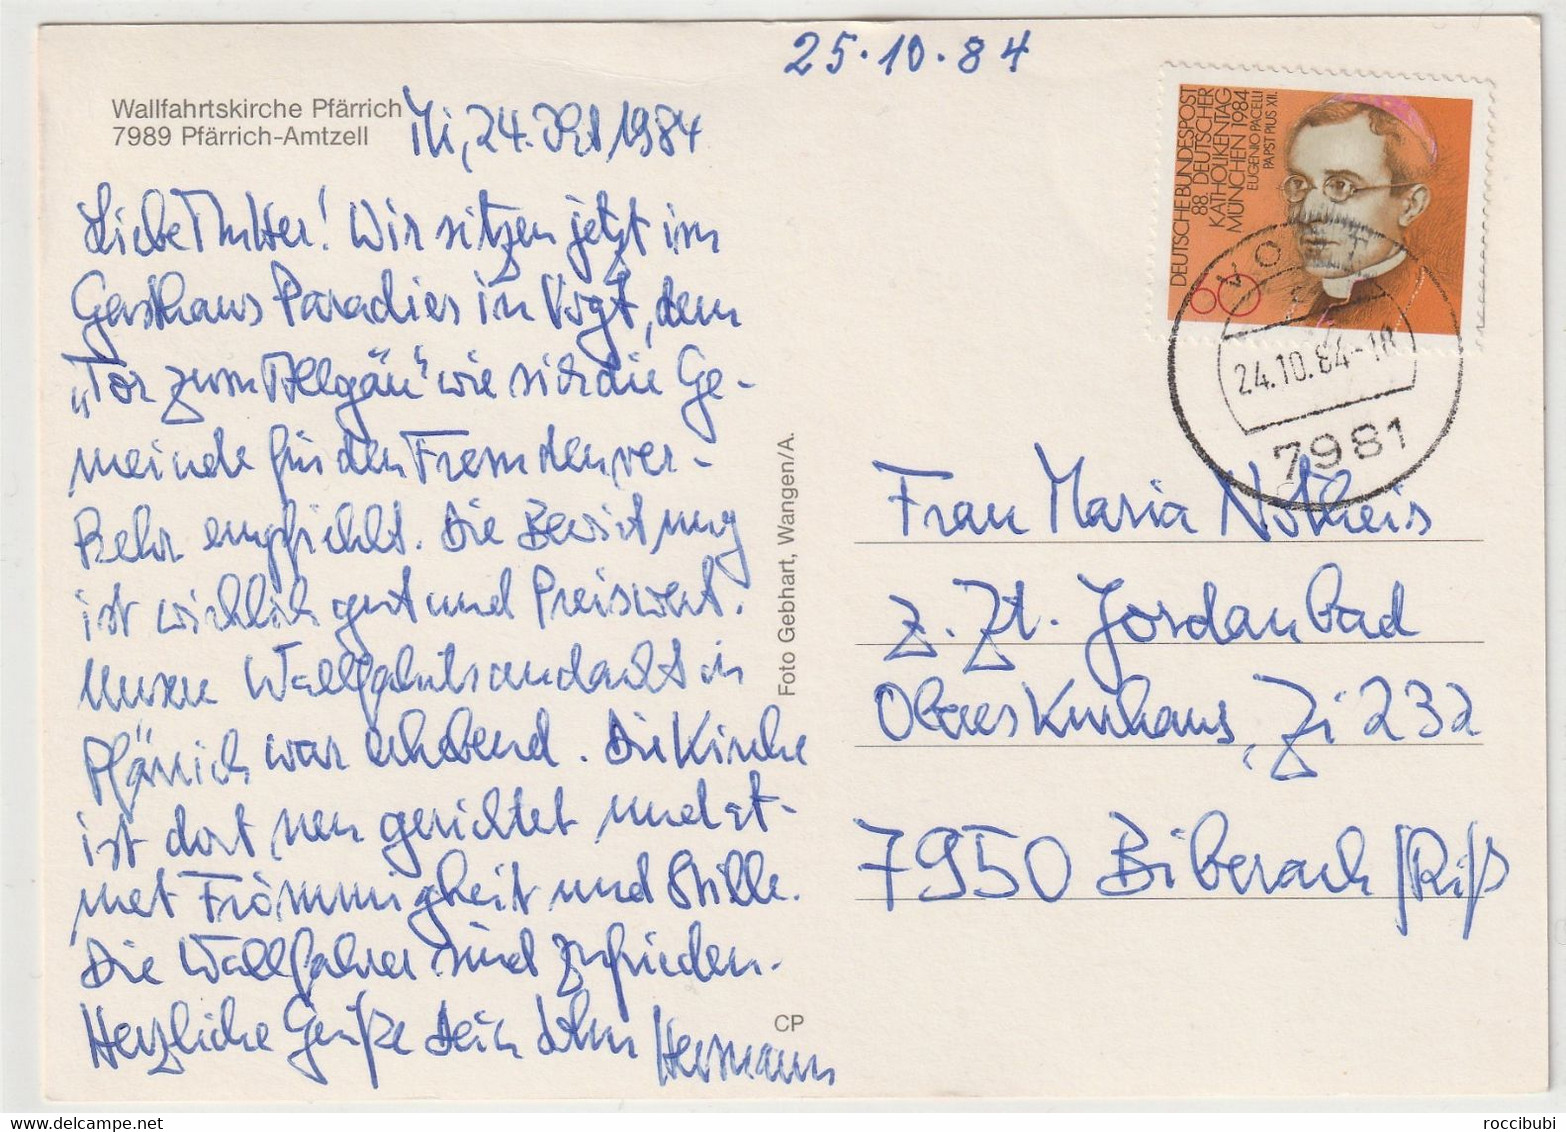 25.10.84
Wallfahrtskirche Pfärrich
7989 Pfärrich-Amtzell
Mi, 24. Okt 1984
Liebe Mutter! Wir sitzen jetzt im
Gasthaus Paradies in Vogt, dem
„Tor zum Allgäu" wie sich die Ge-
meinde für den Fremdenver-
kehr empfiehlt. Die Bewirtung
ist wirklich gut und Preiswert.
Unsere Wallfahrtsandacht in
Pfärrich war erhebend. Die Kirche
ist dort neu gerichtet und at-
met Frömmigkeit und Stille.
Die Wallfahrer sind zufrieden.
Herzliche Grüße Dein Sohn Hermann
Foto Gebhart, Wangen/A.
CP
DEUTSCHE BUNDESPOST
88. DEUTSCHER
KATHOLIKENTAG
MÜNCHEN 1984
EUGENIO PACELLI
PAPST PIUS XII.
60
VOGT
24.10.84-18
7981
Frau Maria Notheis
z. Zt. Jordanbad
Oberes Kurhaus, Zi 232
7950 Biberach/Riß
roccibubi